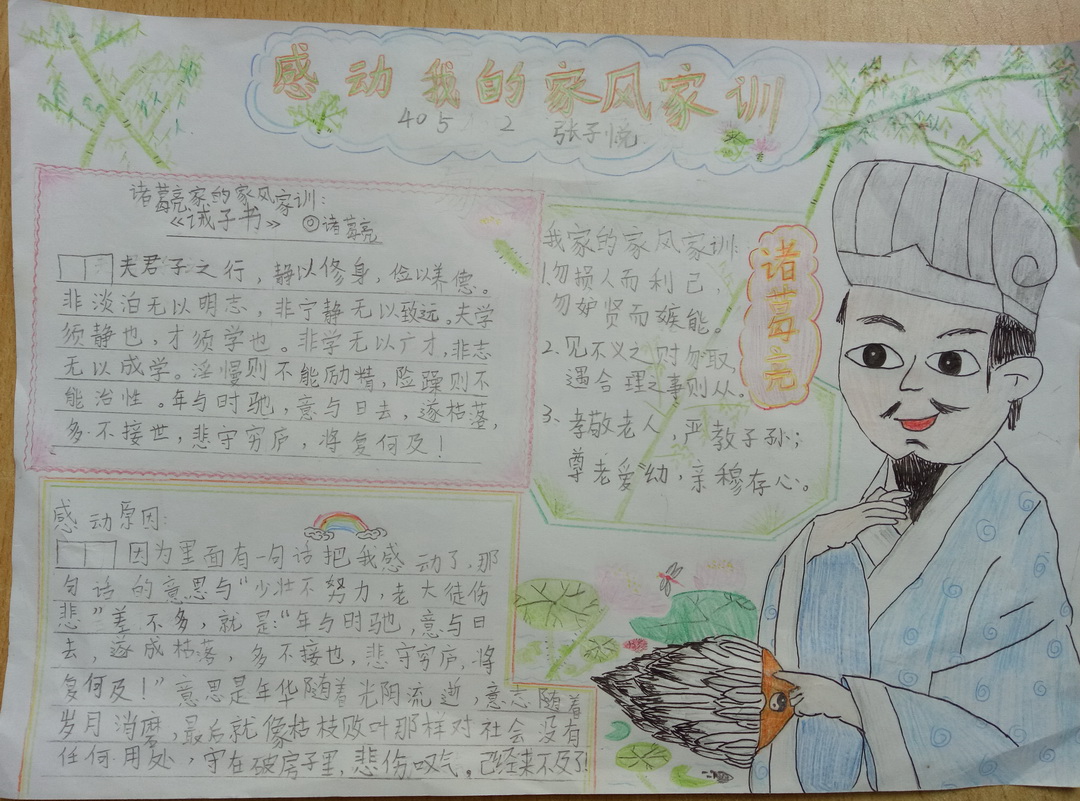 感动我的家风家训
405 2 张子悦
诸葛亮家的家风家训:
《诫子书》 ◎诸葛亮
夫君子之行，静以修身，俭以养德。
非淡泊无以明志，非宁静无以致远。夫学
须静也，才须学也。非学无以广才，非志
无以成学。淫慢则不能励精，险躁则不
能治性。年与时驰，意与日去，遂枯落，
多不接世，悲守穷庐，将复何及！
我家的家风家训:
1.勿损人而利己，
勿妒贤而嫉能。
2.见不义之财勿取，
遇合理之事则从。
3、孝敬老人，严教子孙；
尊老爱幼，亲穆存心。
诸葛亮
感动原因:
因为里面有一句话把我感动了，那
句话的意思与“少壮不努力，老大徒伤
悲”差不多，就是:“年与时驰，意与日
去，遂成枯落，多不接也，悲守穷庐，将
复何及！”意思是年华随着光阴流逝，意志随着
岁月消磨，最后就像枯枝败叶那样对社会没有
任何用处，守在破房子里，悲伤叹气。已经来不及了！